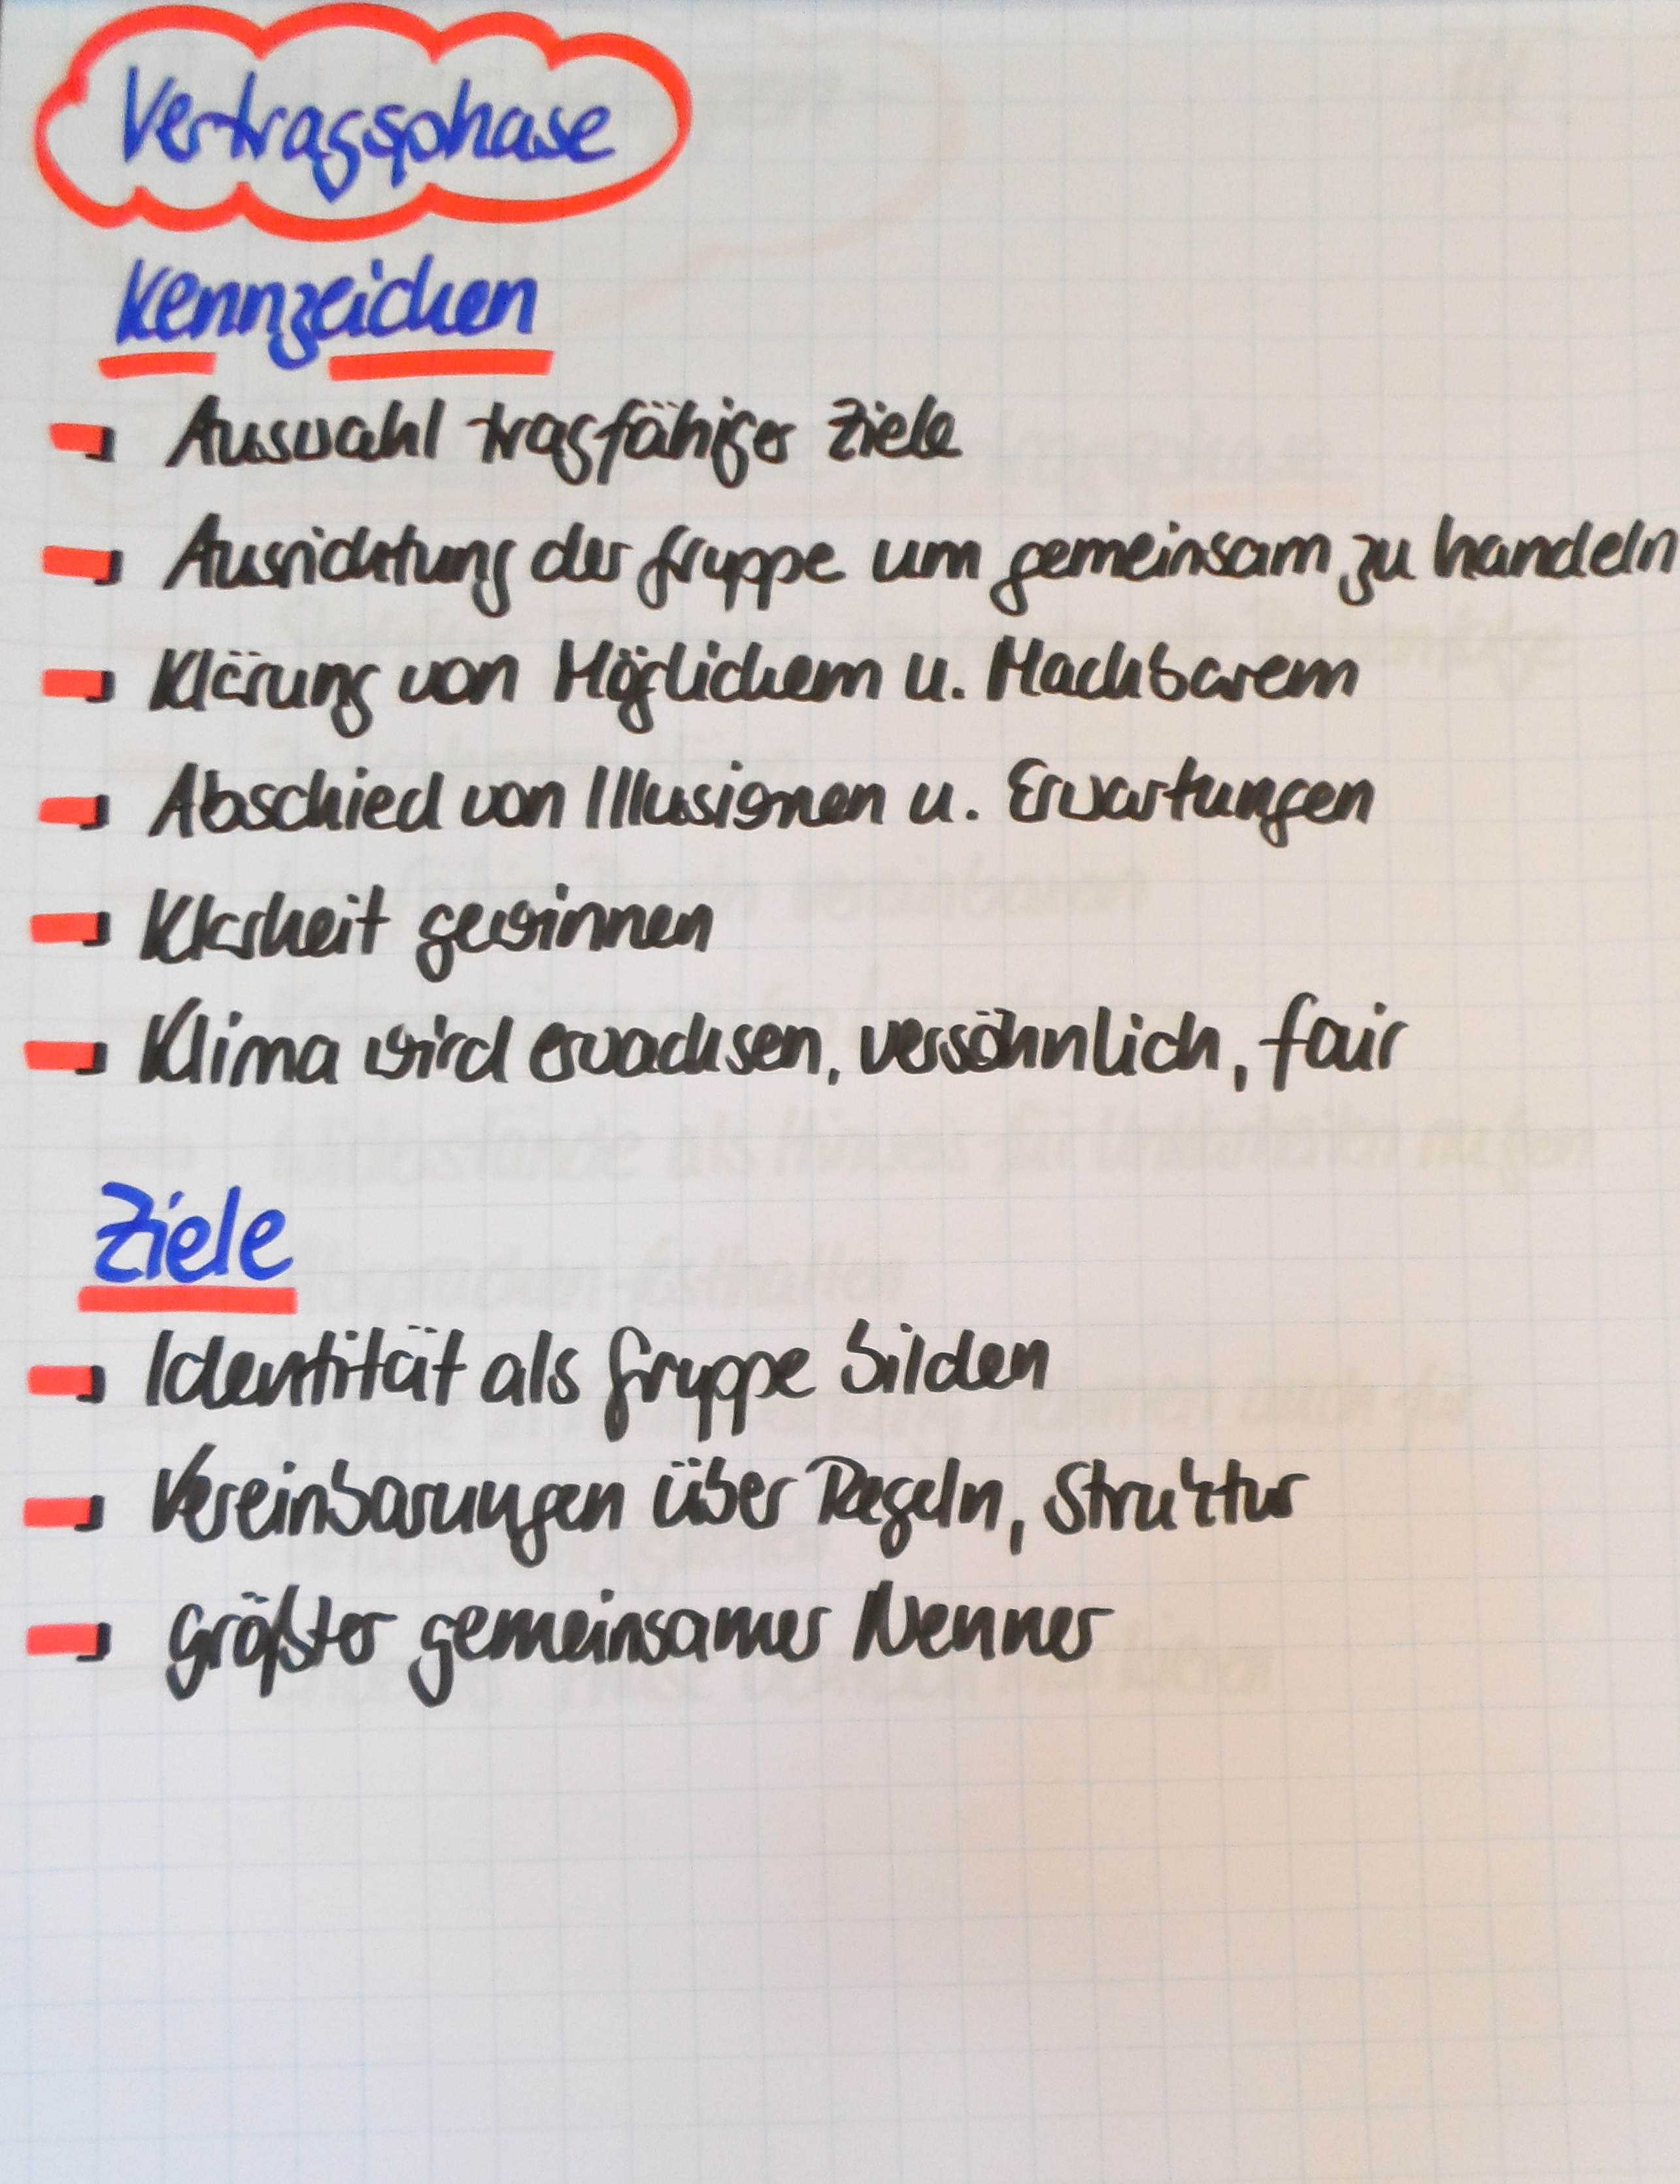 Vertragsphase
Kennzeichen
- Auswahl tragfähiger Ziele
- Ausrichtung der Gruppe um gemeinsam zu handeln
- Klärung von Möglichem u. Machbarem
- Abschied von Illlusionen u. Erwartungen
- Klarheit gewinnen
- Klima wird erwachsen, versöhnlich, fair
Ziele
- Identität als Gruppe bilden
- Vereinbarungen über Regeln, Struktur
- größter gemeinsamer Nenner